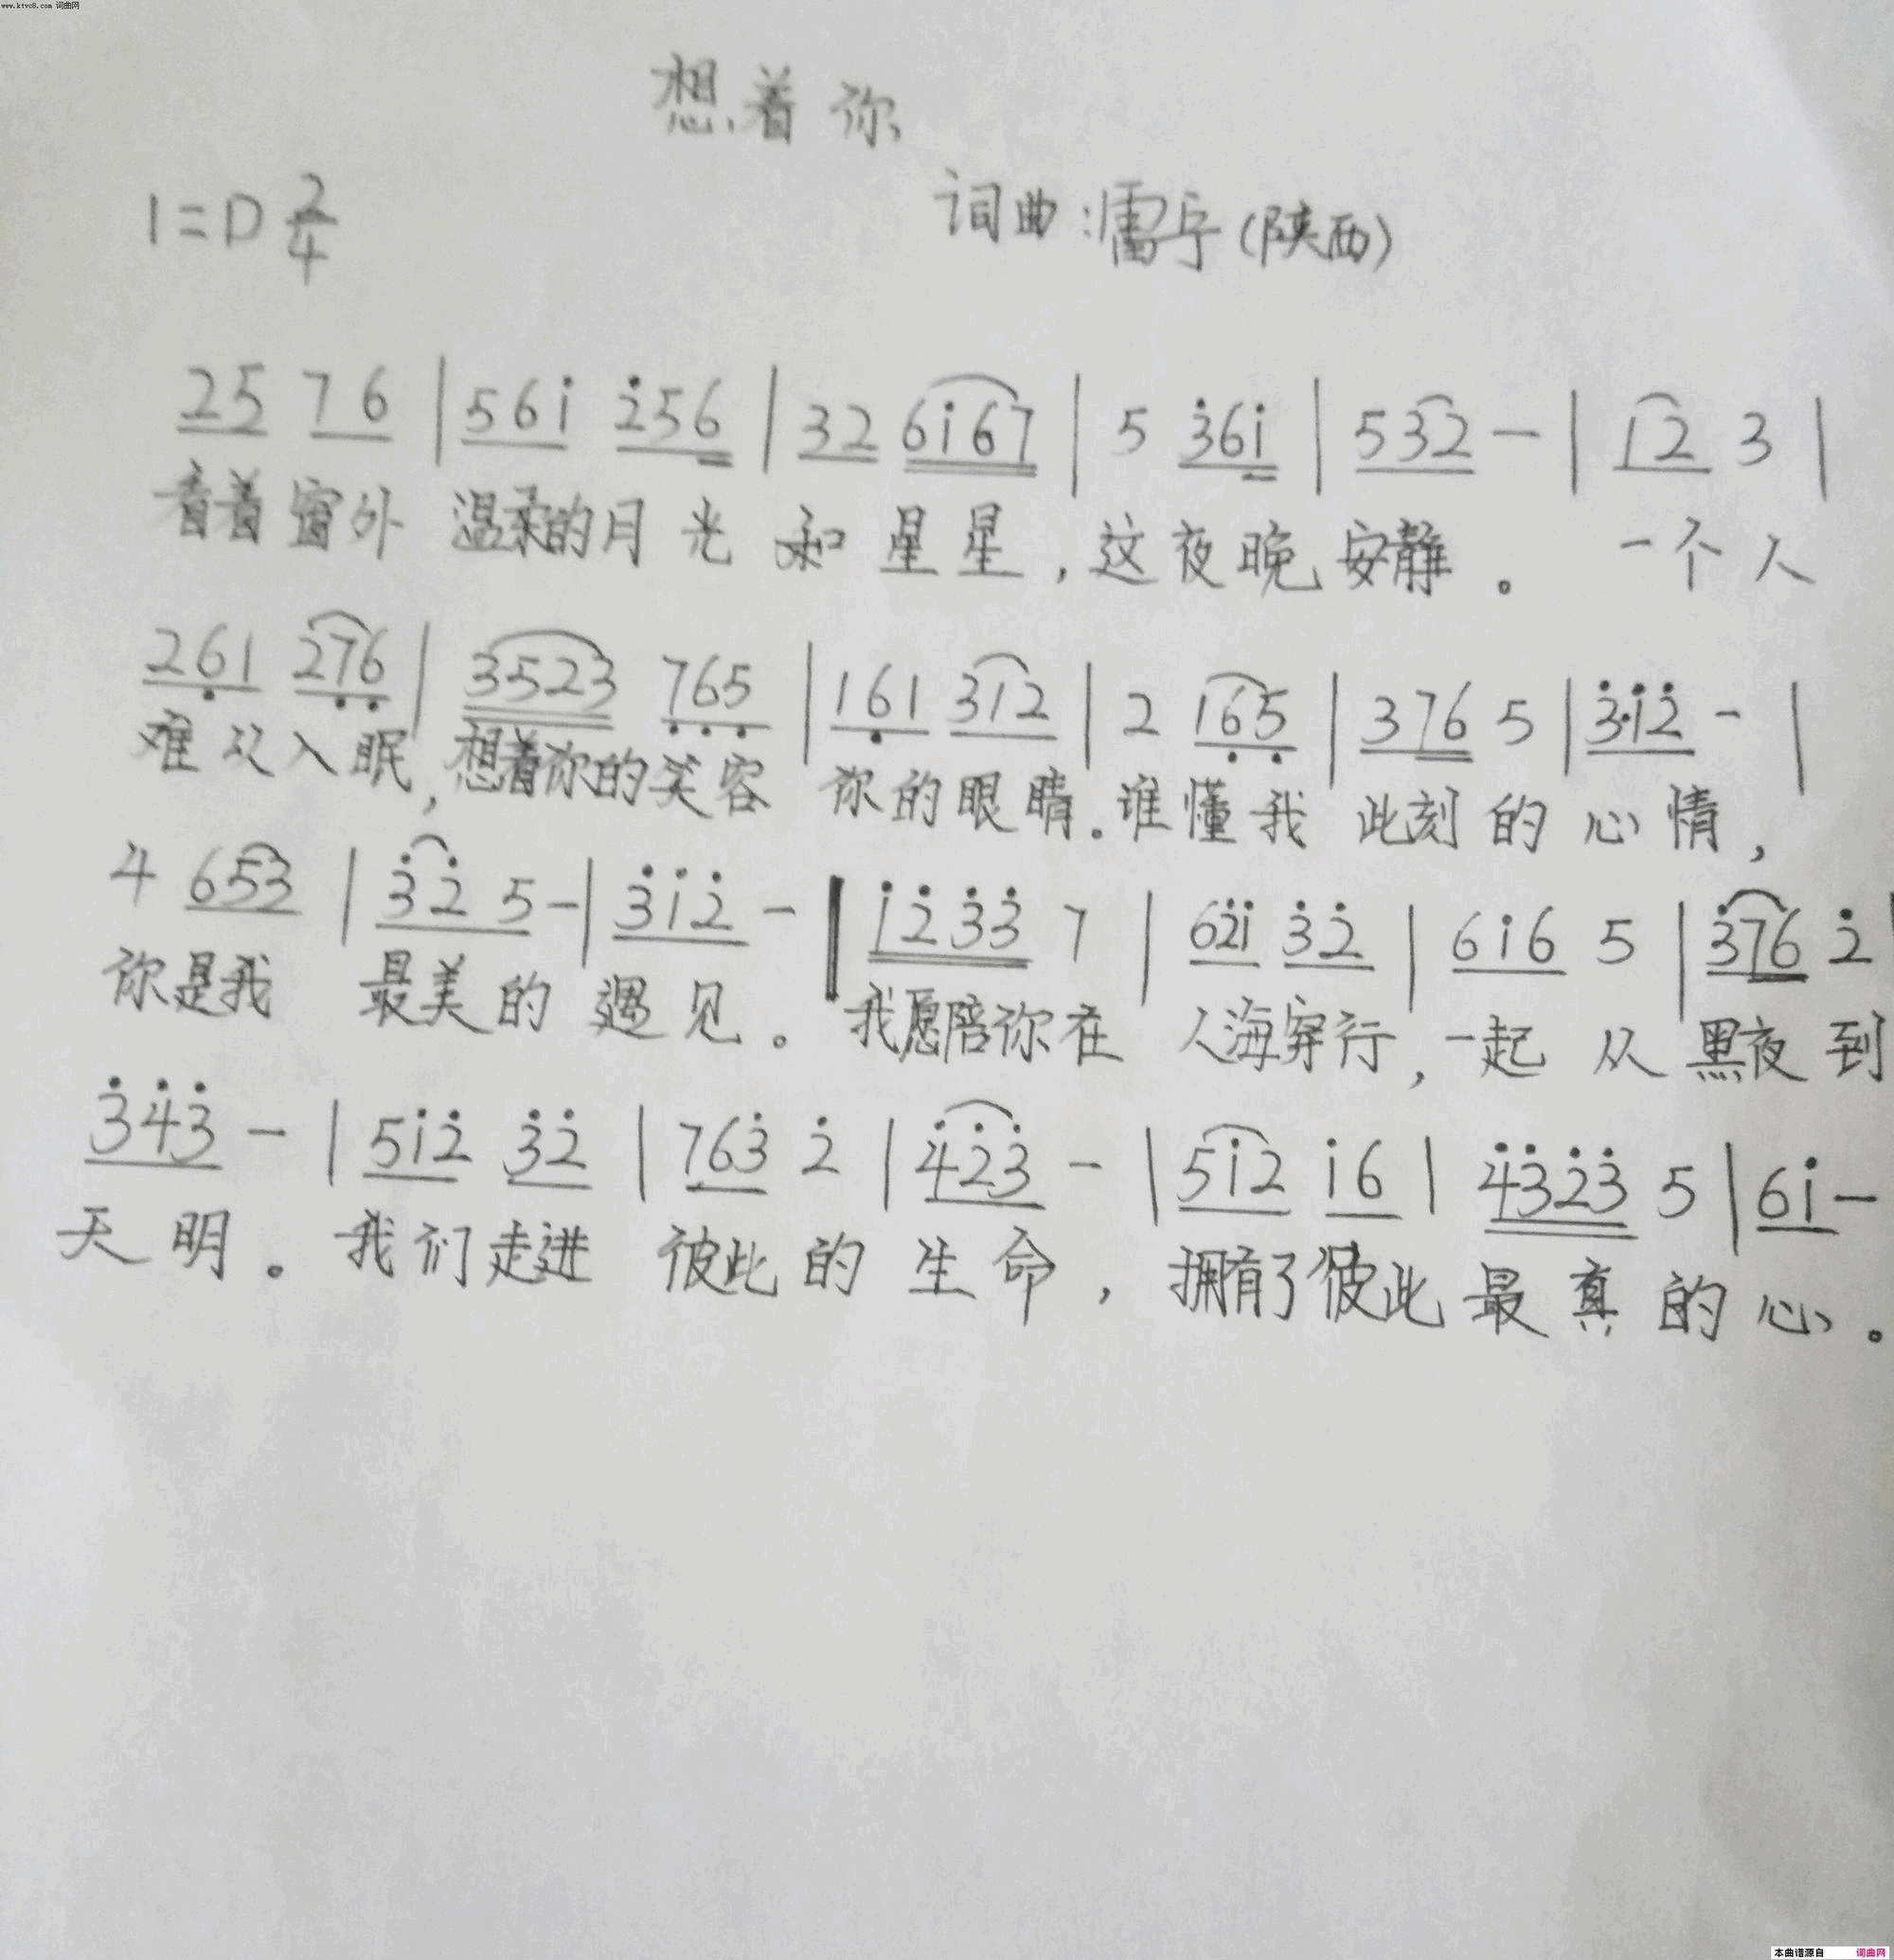 www.ktvc8.com 词曲网
想着你
1=D 2/4
词曲:儒宇(陕西)
25 76 | 56i̇ 2̇56 | 32 6i̇67 | 5 3̇6i̇ | 532 - | 12 3 |
看着窗外 温柔的月光 和星星,这夜晚安静。 一个人
26̣1 27̣6̣ | 3523 7̣6̣5̣ | 16̣1 312 | 2 16̣5̣ | 376 5 | 3̇·i̇2̇ - |
难以入眠,想着你的笑容 你的眼睛.谁懂我 此刻的心情,
4 653 | 3̇2̇ 5- | 3̇i̇2̇ - | i̇2̇3̇3̇ 7 | 62̇i̇ 3̇2̇ | 6i̇6 5 | 3̇76 2̇ |
你是我 最美的遇见。我愿陪你在 人海穿行,一起 从黑夜到
3̇4̇3̇ - | 5i̇2̇ 3̇2̇ | 763̇ 2̇ | 4̇2̇3̇ - | 5i̇2 i̇6 | 4̇3̇2̇3̇ 5 | 6i̇ -
天明。我们走进 彼此的生命,拥有了彼此最真的心。
本曲谱源自 词曲网